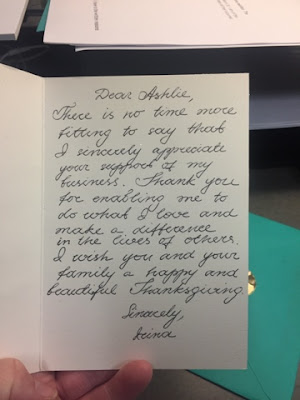 Dear Ashlie,
There is no time more
fitting to say that
I sincerely appreciate
your support of my
business. Thank you
for enabling me to
do what I love and
make a difference
in the lives of others.
I wish you and your
family a happy and
beautiful Thanksgiving.
Sincerely,
Irina